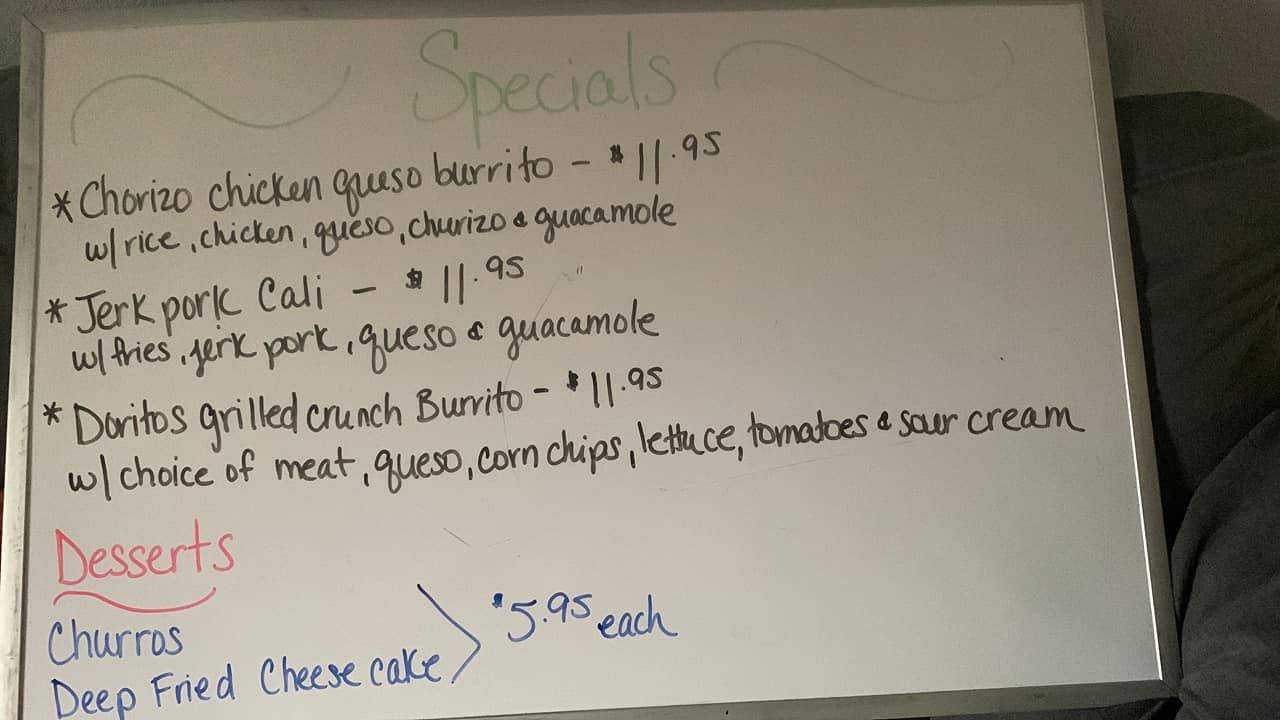 Specials
* Chorizo chicken queso burrito - $11.95
w/ rice, chicken, queso, churizo & guacamole
* Jerk pork Cali - $11.95
w/ fries, jerk pork, queso & guacamole
* Doritos grilled crunch Burrito - $11.95
w/ choice of meat, queso, corn chips, lettuce, tomatoes & sour cream
Desserts
Churros
Deep Fried Cheesecake
$5.95 each